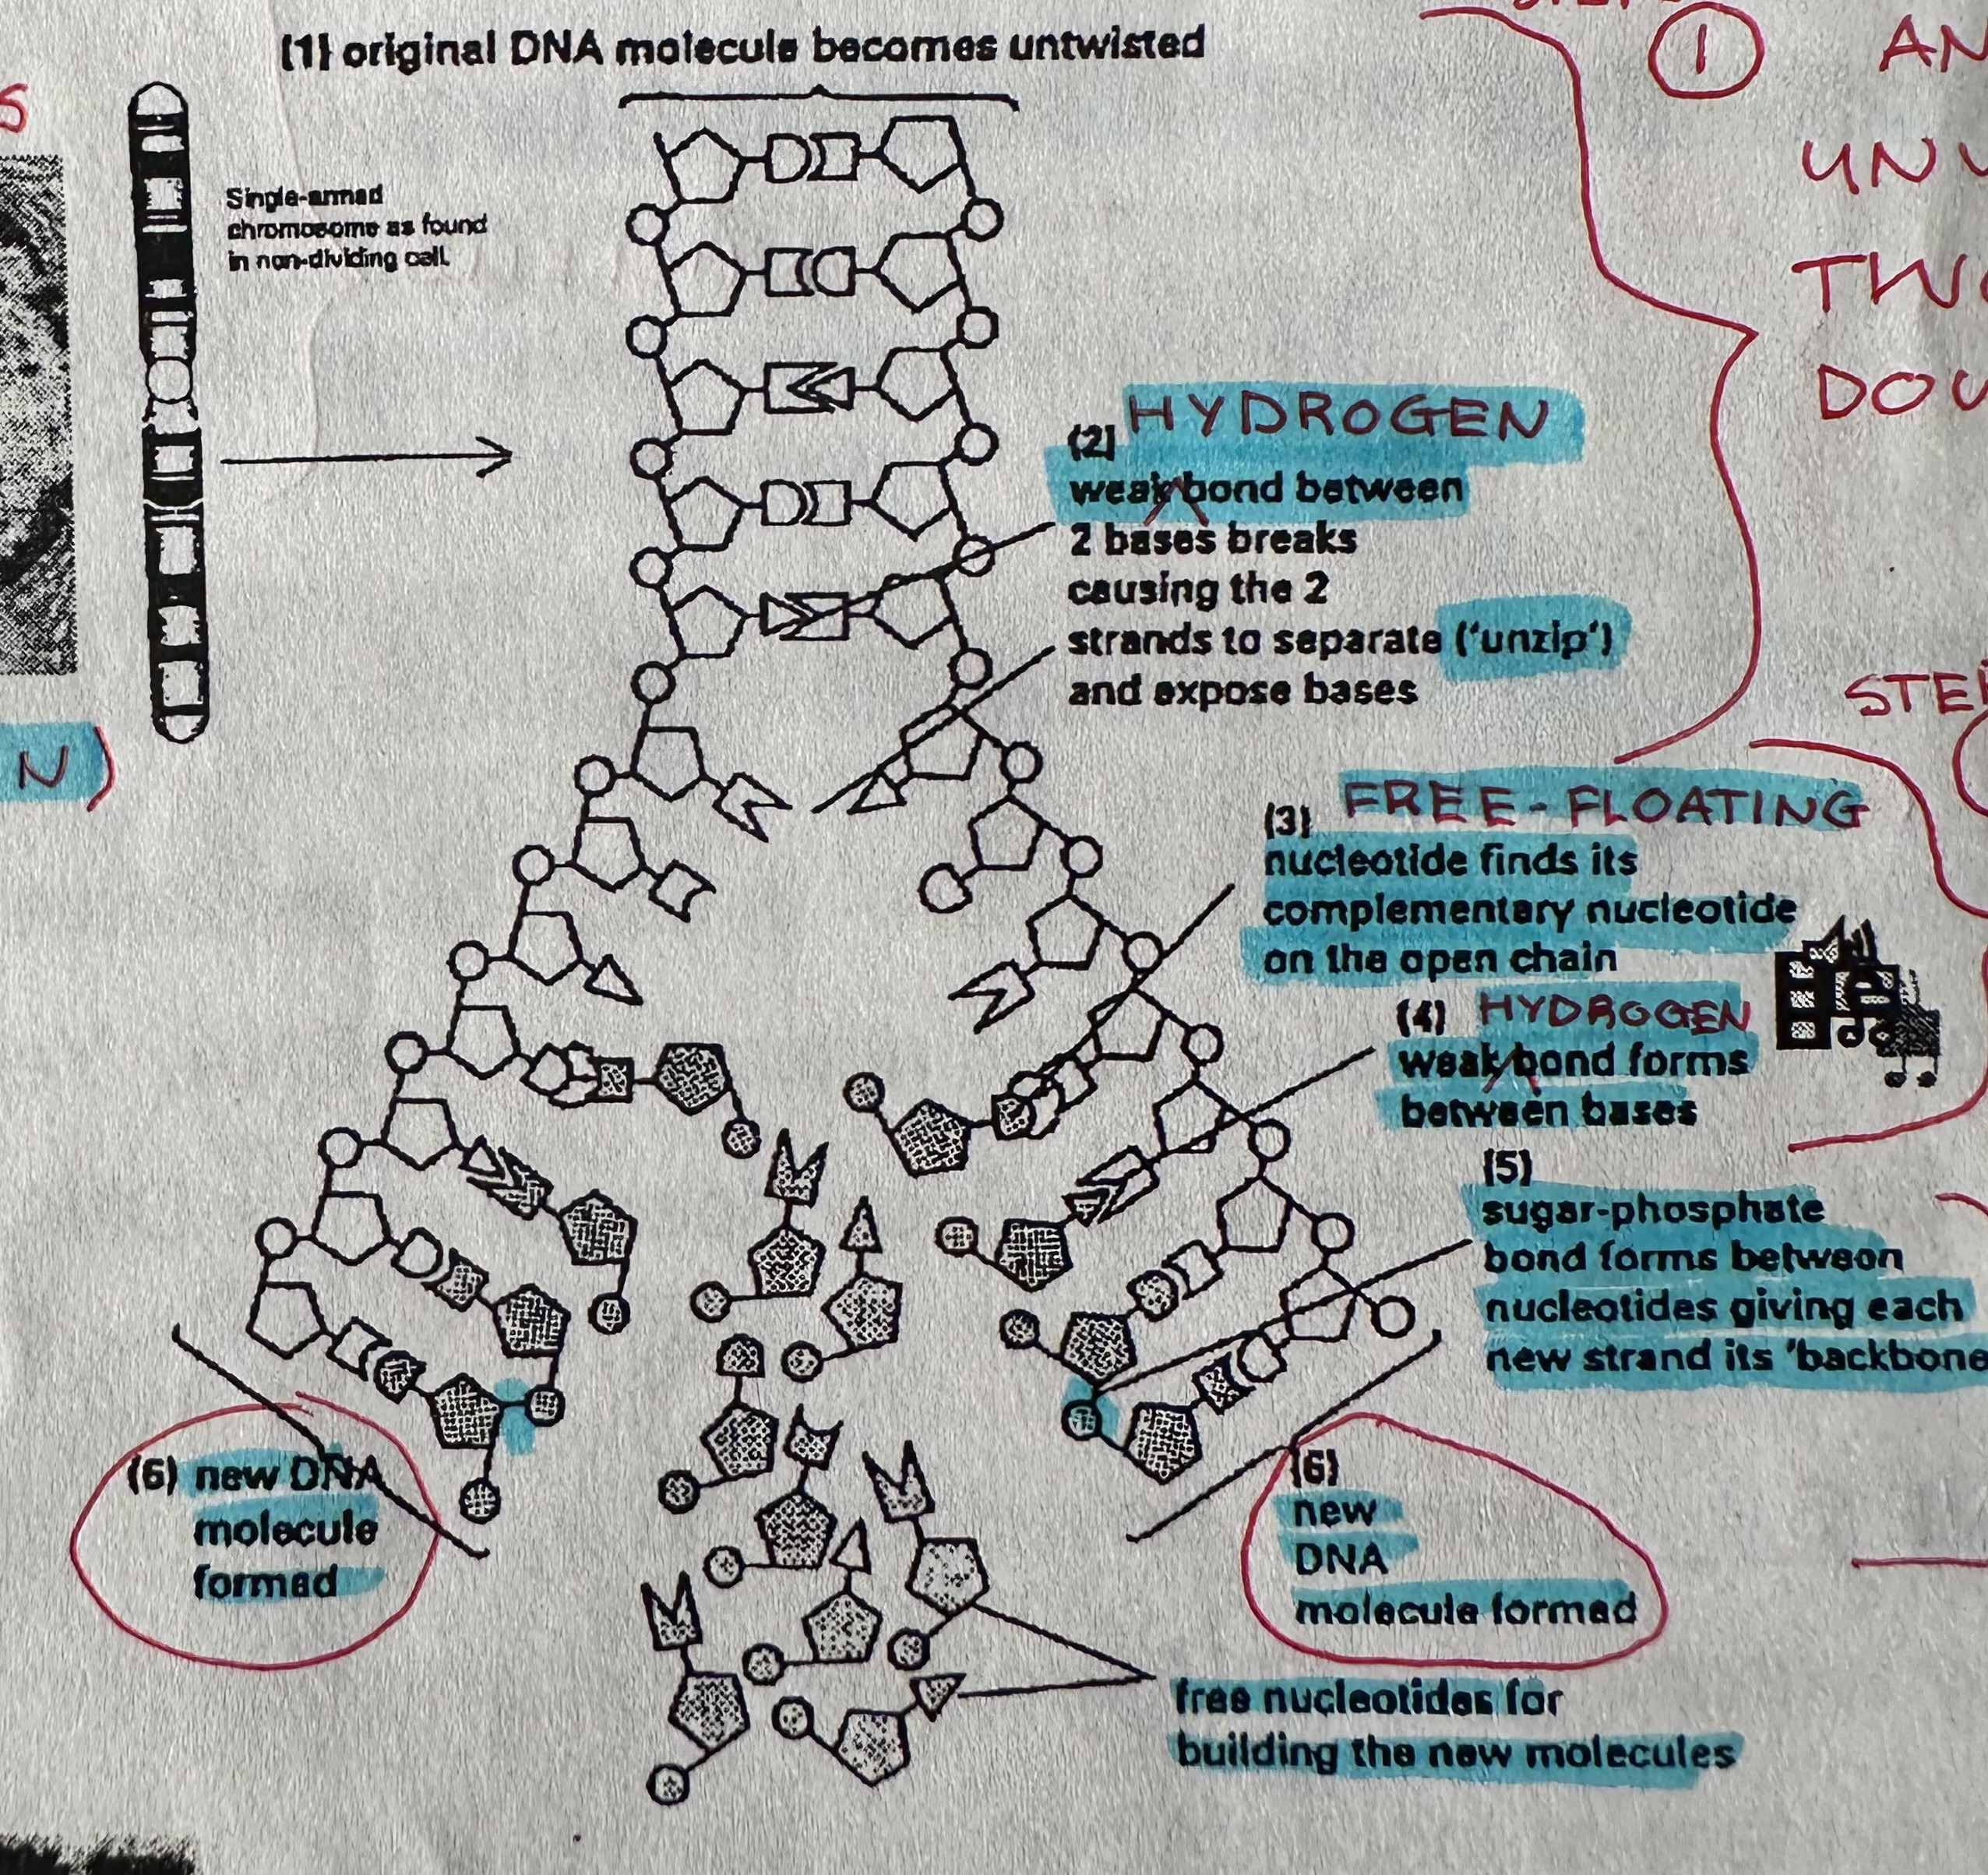 (1) original DNA molecule becomes untwisted
Single-armed
chromosome as found
in non-dividing cell.
N)
(2) HYDROGEN
weak bond between
2 bases breaks
causing the 2
strands to separate ('unzip')
and expose bases
(3) FREE-FLOATING
nucleotide finds its
complementary nucleotide
on the open chain
(4) HYDROGEN
weak bond forms
between bases
(5)
sugar-phosphate
bond forms between
nucleotides giving each
new strand its 'backbone
(6) new DNA
molecule
formed
(6)
new
DNA
molecule formed
free nucleotides for
building the new molecules
1 AN
UN
TW
DOU
STE
S